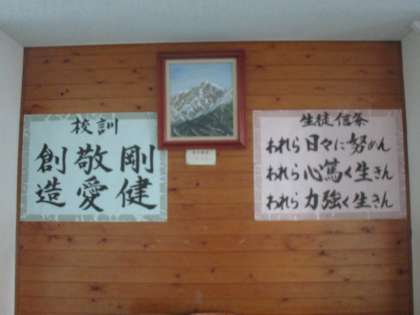 校訓
剛健
敬愛
創造
生徒信条
われら 日々に努めん
われら 心篤く生きん
われら 力強く生きん